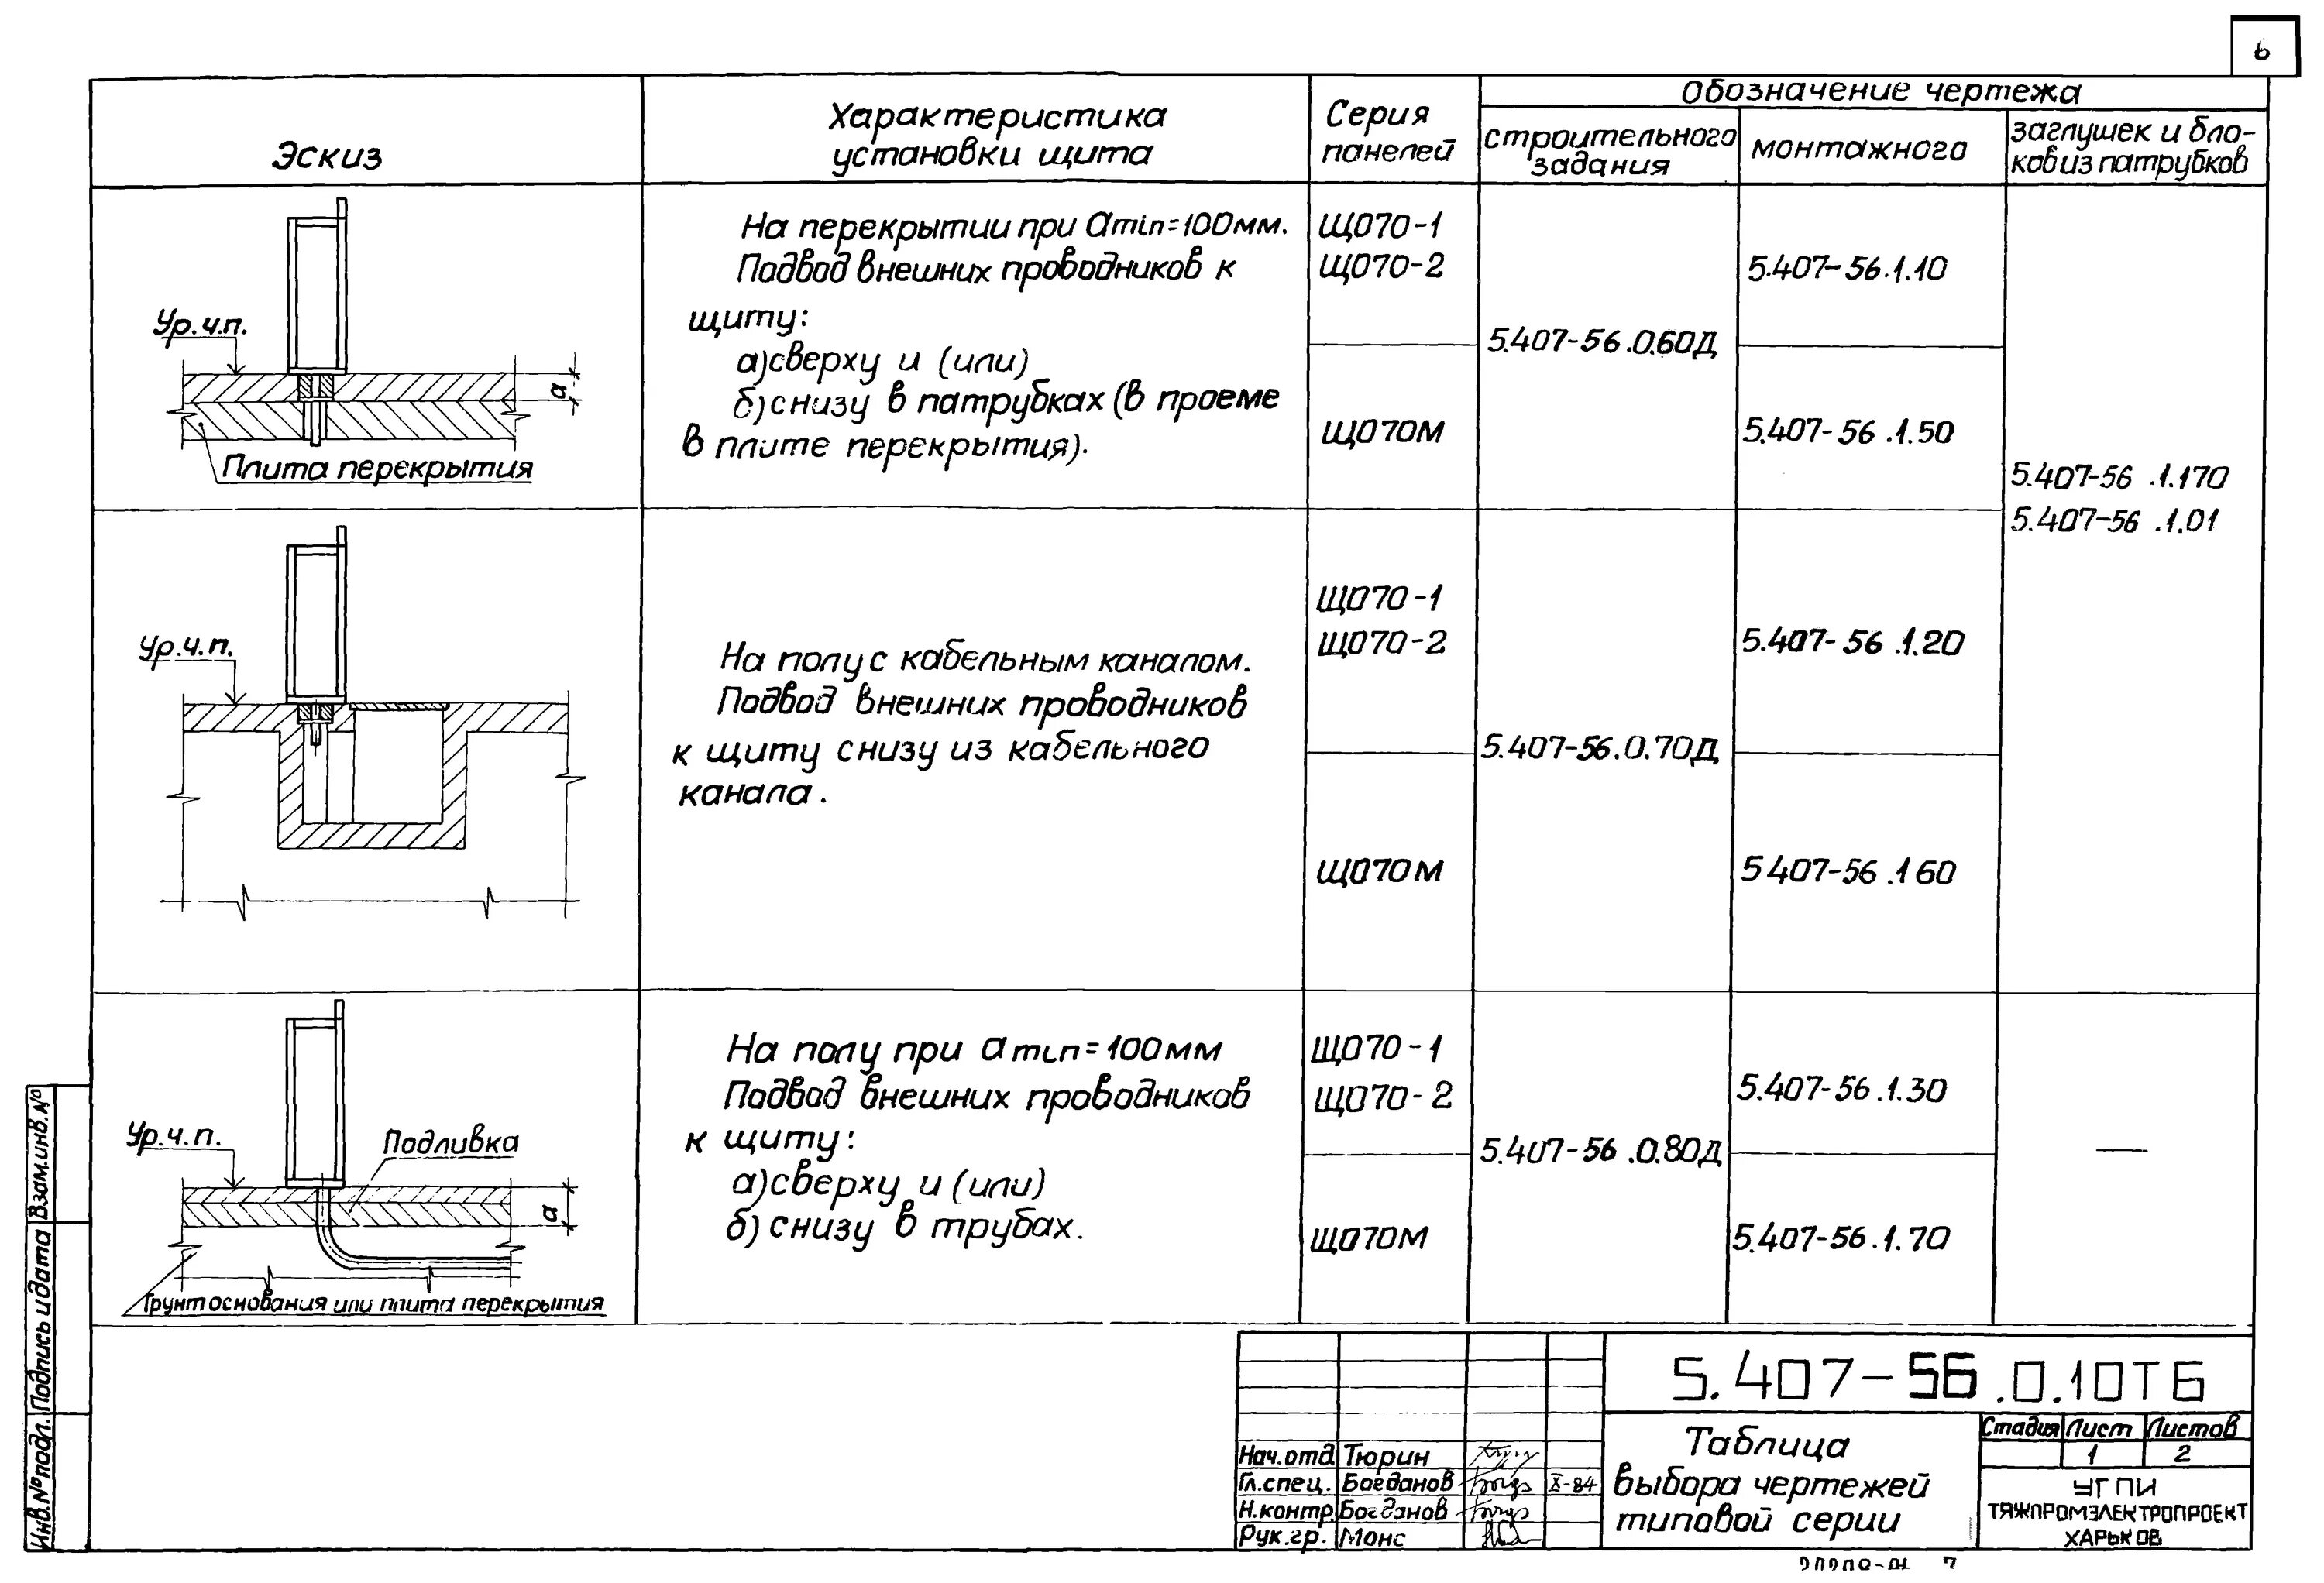 6
Эскиз
Характеристика
установки щита
Серия
панелей
Обозначение чертежа
строительного
задания
монтажного
заглушек и бло-
ков из патрубков
Ур.ч.п.
а
Плита перекрытия
На перекрытии при аmin=100мм.
Подвод внешних проводников к
щиту:
а) сверху и (или)
б) снизу в патрубках (в проеме
в плите перекрытия).
ЩО70-1
ЩО70-2
ЩО70М
5.407-56.0.60Д
5.407-56.1.10
5.407-56.1.50
5.407-56.1.170
5.407-56.1.01
Ур.ч.п.
На полу с кабельным каналом.
Подвод внешних проводников
к щиту снизу из кабельного
канала.
ЩО70-1
ЩО70-2
ЩО70М
5.407-56.0.70Д
5.407-56.1.20
5 407-56.1 60
Ур.ч.п.
Подливка
а
Грунт основания или плита перекрытия
На полу при аmin=100мм
Подвод внешних проводников
к щиту:
а) сверху и (или)
б) снизу в трубах.
ЩО70-1
ЩО70-2
ЩО70М
5.407-56.0.80Д
5.407-56.1.30
5.407-56.1.70
—
Инв.№ подл. Подпись и дата Взам.инв.№
5.407-56.0.10ТБ
Таблица
выбора чертежей
типовой серии
Стадия Лист Листов
1 2
УГПИ
ТЯЖПРОМЭЛЕКТРОПРОЕКТ
ХАРЬКОВ
Нач.отд Тюрин
Гл.спец. Богданов X-84
Н.контр. Богданов
Рук.гр. Монс
7